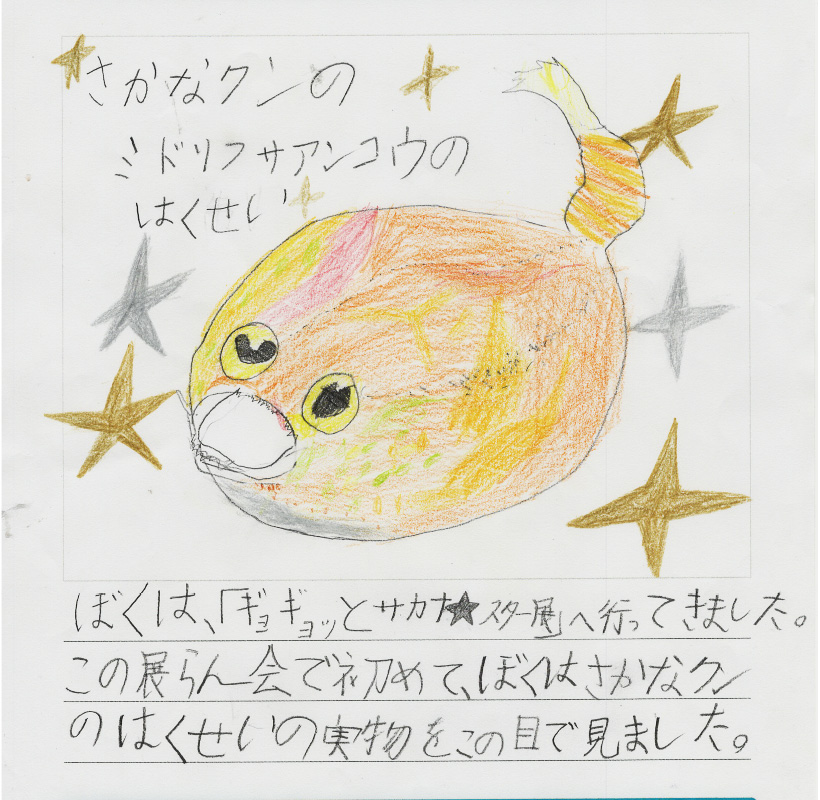 さかなクンの
ミドリフサアンコウの
はくせい
ぼくは、「ギョギョッとサカナ★スター展」へ行ってきました。
この展らん会で初めて、ぼくはさかなクン
のはくせいの実物をこの目で見ました。